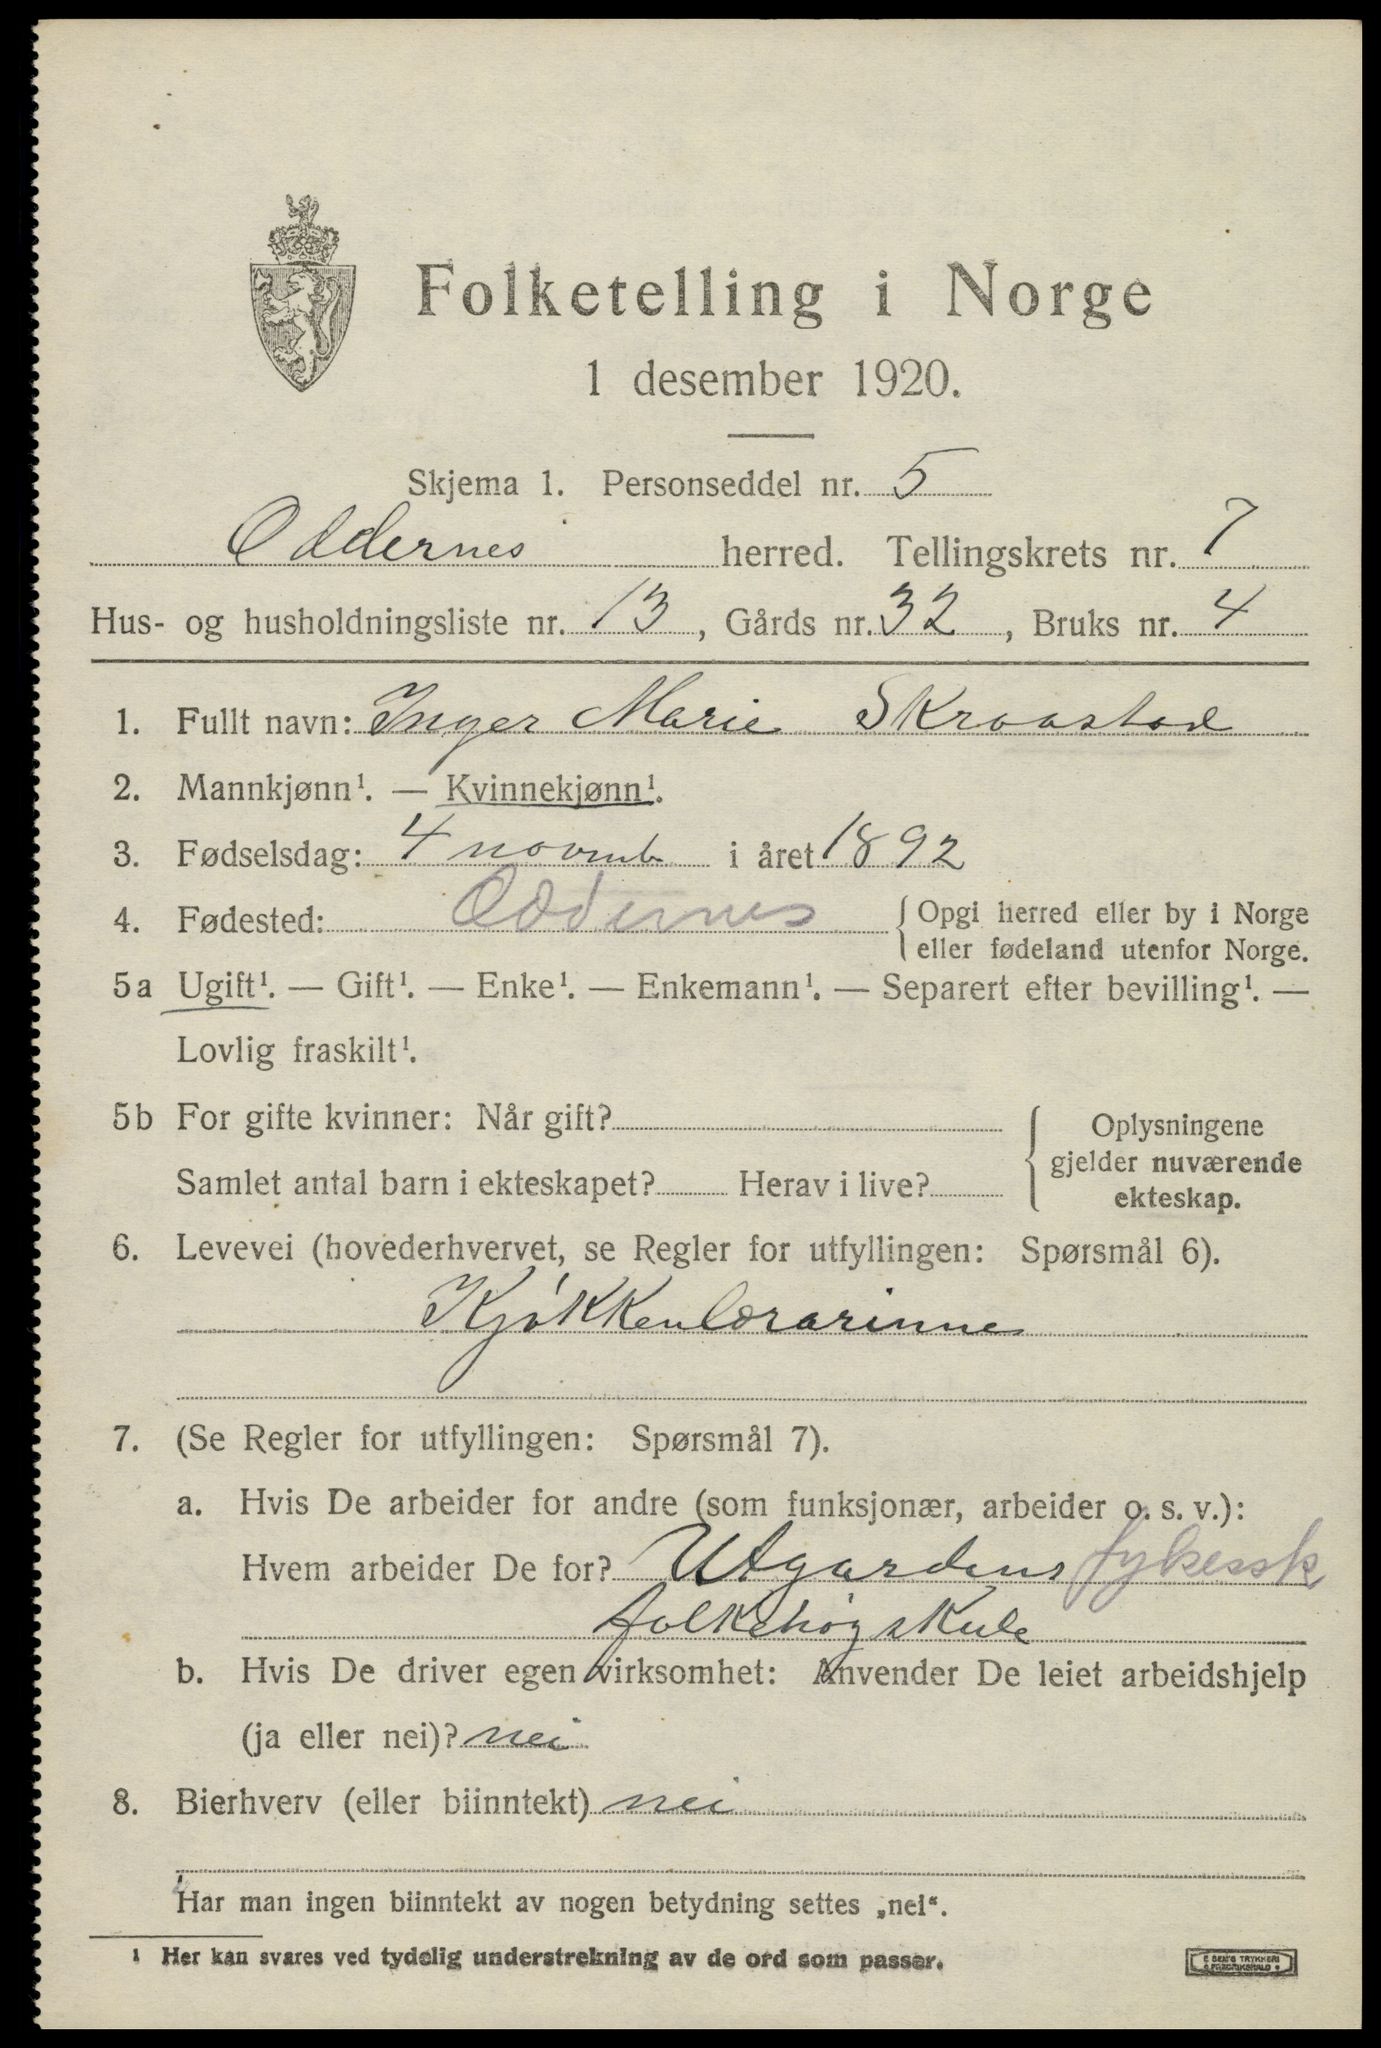 Folketelling i Norge
1 desember 1920.
Skjema 1. Personseddel nr. 5
Oddernes herred. Tellingskrets nr. 7
Hus- og husholdningsliste nr. 13, Gårds nr. 32, Bruks nr. 4
1. Fullt navn: Inger Marie Skraastad
2. Mannkjønn¹. — Kvinnekjønn¹.
3. Fødselsdag: 4 novemb i året 1892
4. Fødested: Oddernes { Opgi herred eller by i Norge
eller fødeland utenfor Norge.
5a Ugift¹. — Gift¹. — Enke¹. — Enkemann¹. — Separert efter bevilling¹. —
Lovlig fraskilt¹.
5b For gifte kvinner: Når gift?
Samlet antal barn i ekteskapet? Herav i live?
Oplysningene
gjelder nuværende
ekteskap.
6. Levevei (hovederhvervet, se Regler for utfyllingen: Spørsmål 6).
Kjøkkenlærarinne
7. (Se Regler for utfyllingen: Spørsmål 7).
a. Hvis De arbeider for andre (som funksjonær, arbeider o. s. v.):
Hvem arbeider De for? Utgardens fylkessk
folkehøgskule
b. Hvis De driver egen virksomhet: Anvender De leiet arbeidshjelp
(ja eller nei)? nei
8. Bierhverv (eller biinntekt) nei
Har man ingen biinntekt av nogen betydning settes „nei“.
¹ Her kan svares ved tydelig understrekning av de ord som passer.